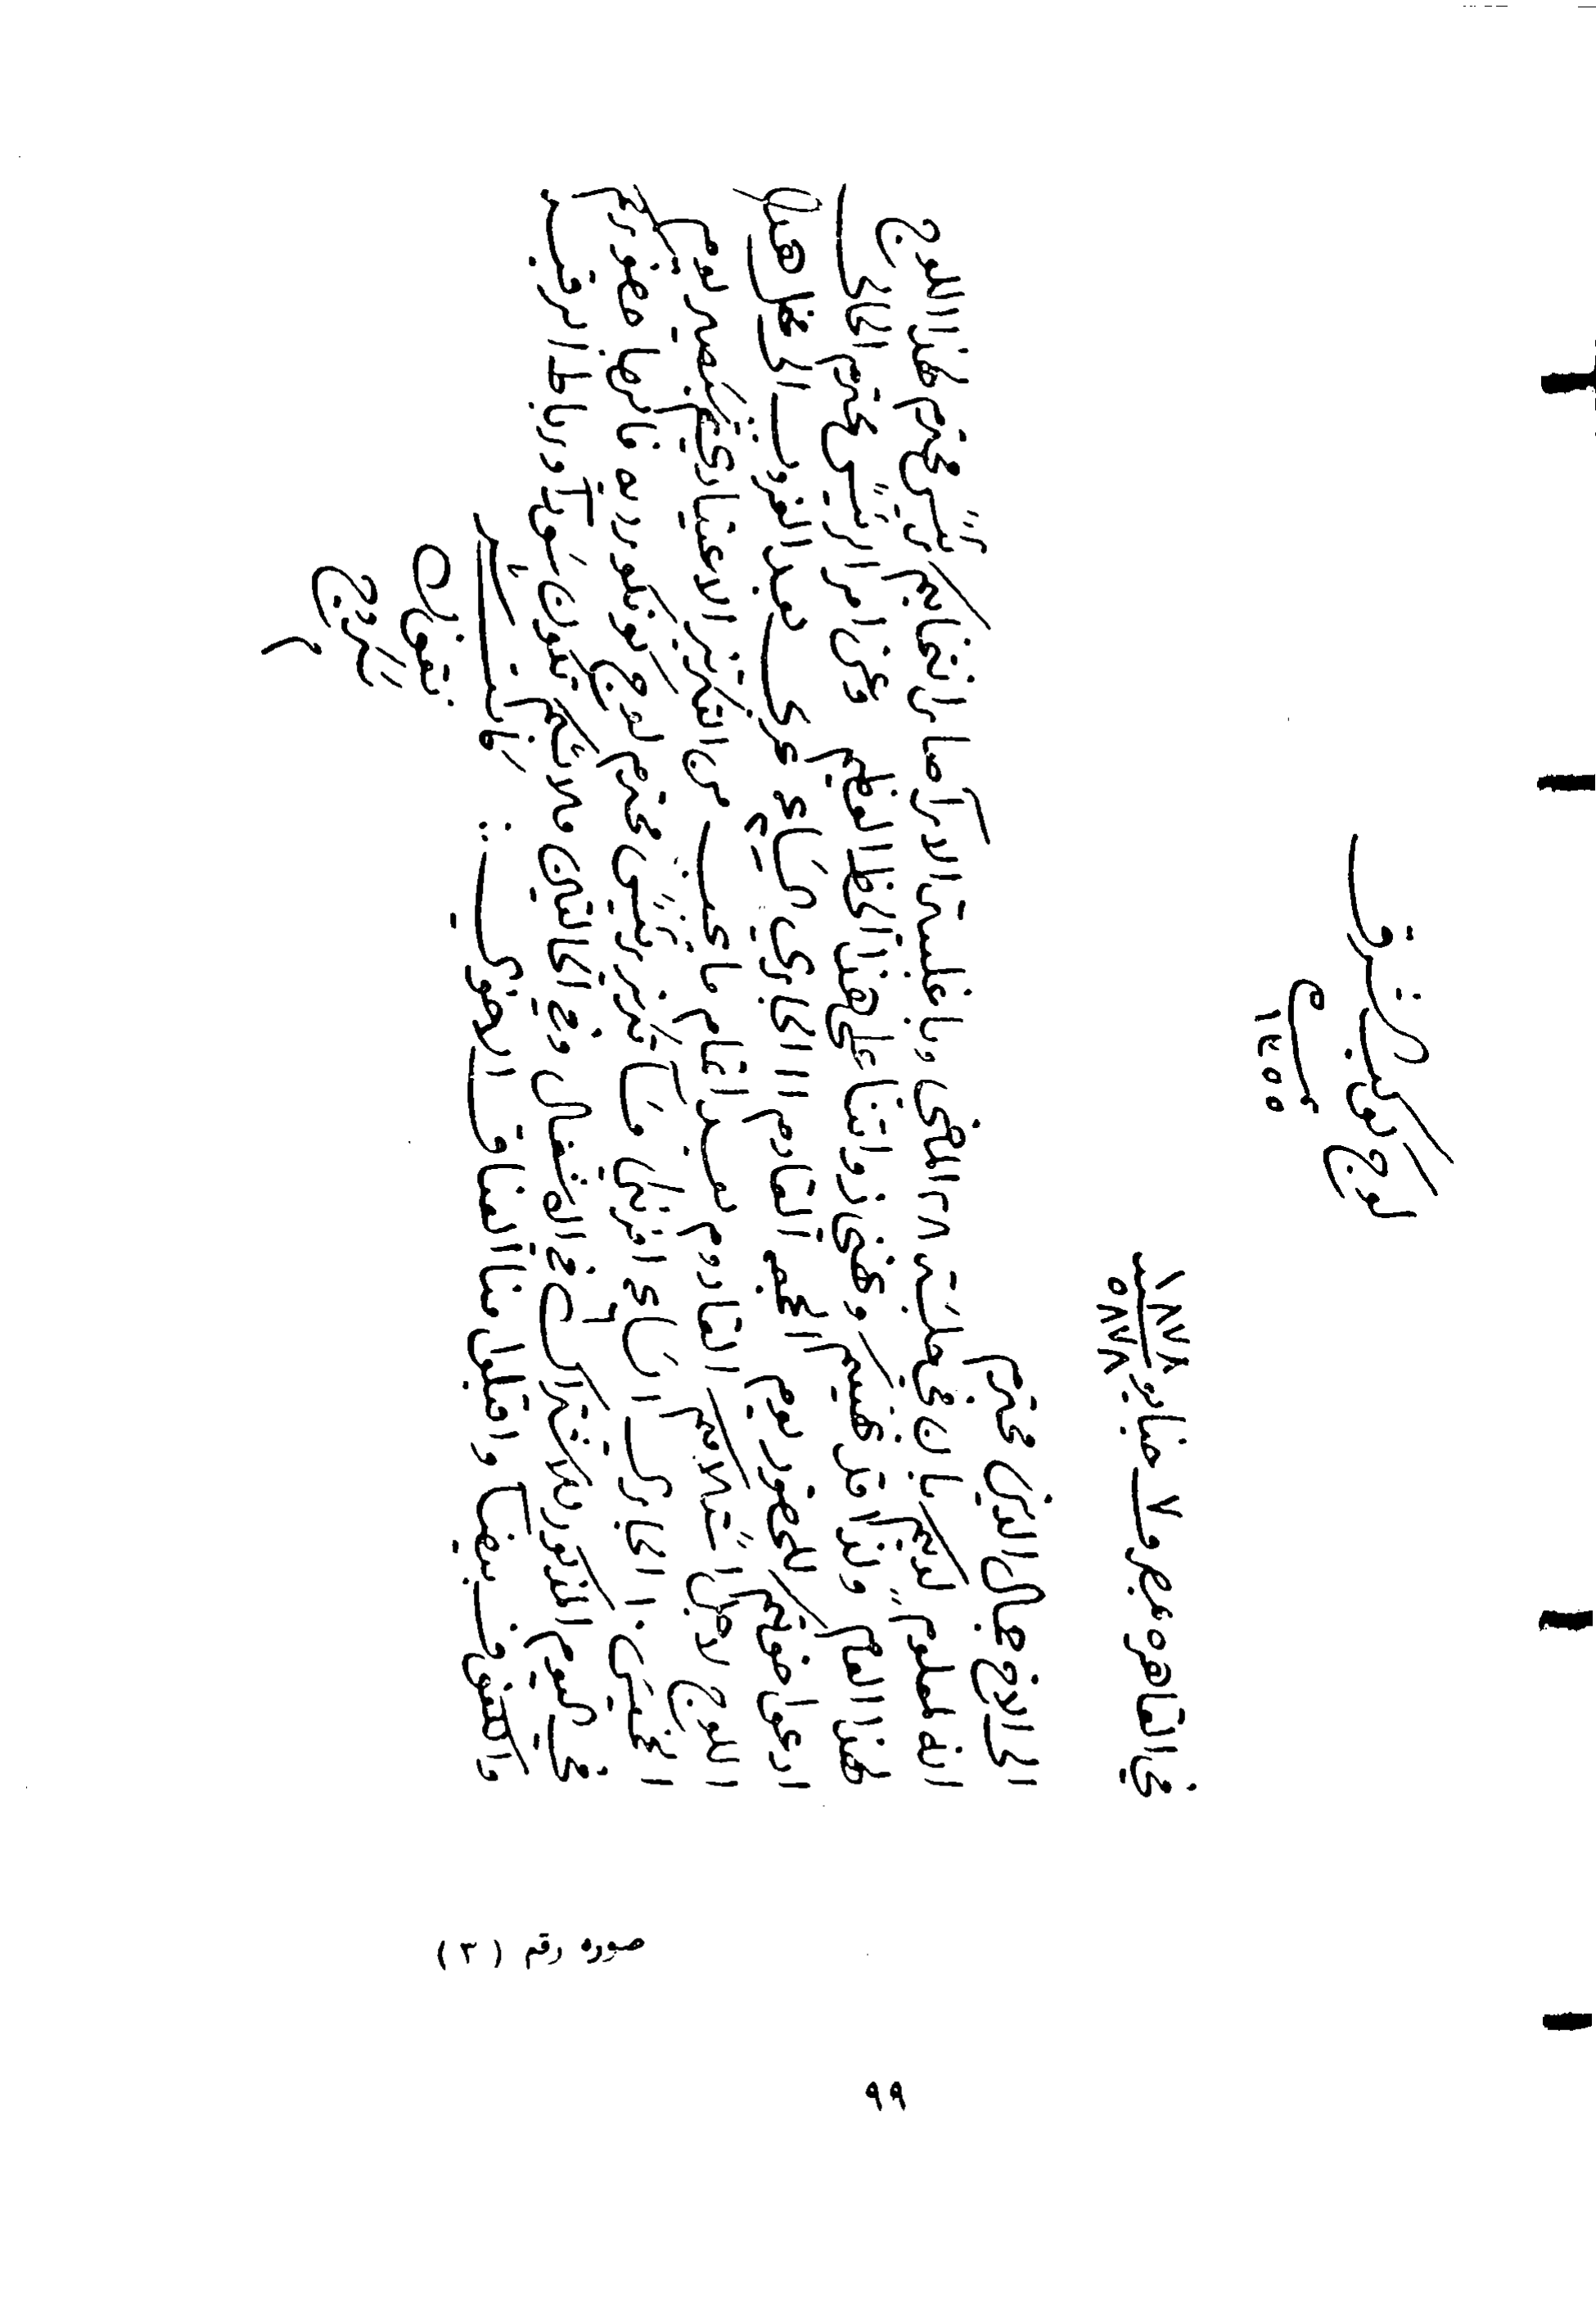 لوج كوكب شرق
نمرة ١٣٥٥
في القاهره بمصر و ٧ جناير ١٨٧٨ ٥٨٧٨
الى الاخ جمال الدين محترم
انه لمعلوم لديكم بان في جلسة ٢٨ الماضي وباغلبية الآرآ صار انتخابكم رئيس محترم لهذا اللوج
لهذا العام ولذا قد نهنيكم ونهني ذواتنا على هذا الحظ العظيم وعن امر الرئيس محترم الحالي
ادعو اخوتكم للحضور يوم الجمعه القادم ١١ الجاري الساعة ٢ عربي بعد الغروب الى محفل هذا
اللوج لاجل استلامكم القادوم بعد اتمام ما يجب من التكريز الاعتيادي ثم سيصير يوم
الخميس ١٠ الجاري الساعة افرنكي مسآ تكريز رئيس محترم لوج كونكورديه فالرجا حضوركم
في اليوم المذكور للاشتراك في الاشغال وفي الحالتين ملابسكم تكون سودآ ورباط الرقبه
والكفوف بيضآ واقبلوا منا العناق الاخوي
كاتب سر
نقولا
سكروج
صوره رقم (٣)
٩٩